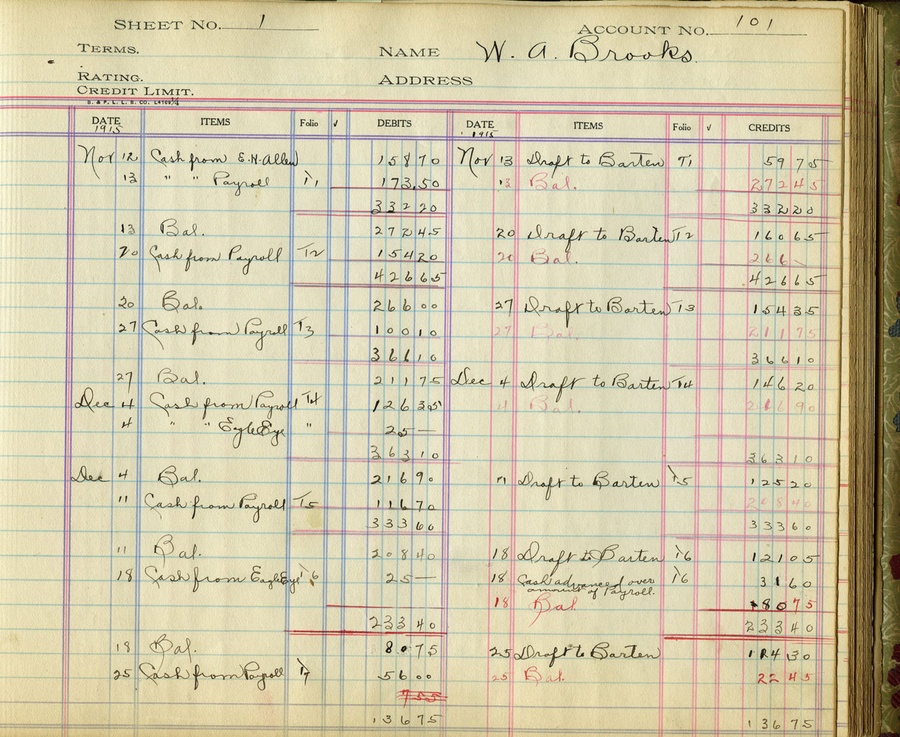 SHEET NO. 1 ACCOUNT NO. 101
TERMS. NAME W. A. Brooks.
RATING. ADDRESS
CREDIT LIMIT.
DATE ITEMS Folio √ DEBITS DATE ITEMS Folio √ CREDITS
1915 1915
Nov 12 Cash from E.N. Allen 158 70 Nov 13 Draft to Barten T1 59 75
13 " " Payroll T1 173.50 13 Bal. 272 45
332 20 332 20
13 Bal. 272 45 20 Draft to Barten T2 160 65
20 Cash from Payroll T2 154 20 20 Bal. 266 —
426 65 426 65
20 Bal. 266 00 27 Draft to Barten T3 154 35
27 Cash from Payroll T3 100 10 27 Bal. 211 75
366 10 366 10
27 Bal. 211 75 Dec 4 Draft to Barten T4 146 20
Dec 4 Cash from Payroll T4 126 35 4 Bal. 216 90
4 " " Eagle Eye " 25 —
363 10 363 10
Dec 4 Bal. 216 90 11 Draft to Barten T5 125 20
11 Cash from Payroll T5 116 70 208 40
333 60 333 60
11 Bal. 208 40 18 Draft to Barten T6 121 05
18 Cash from Eagle Eye T6 25 — 18 Cash advanced over T6 31 60
amount of Payroll.
18 Bal 80 75
233 40 233 40
18 Bal. 80 75 25 Draft to Barten 114 30
25 Cash from Payroll T7 56 00 25 Bal. 22 45
755
136 75 136 75